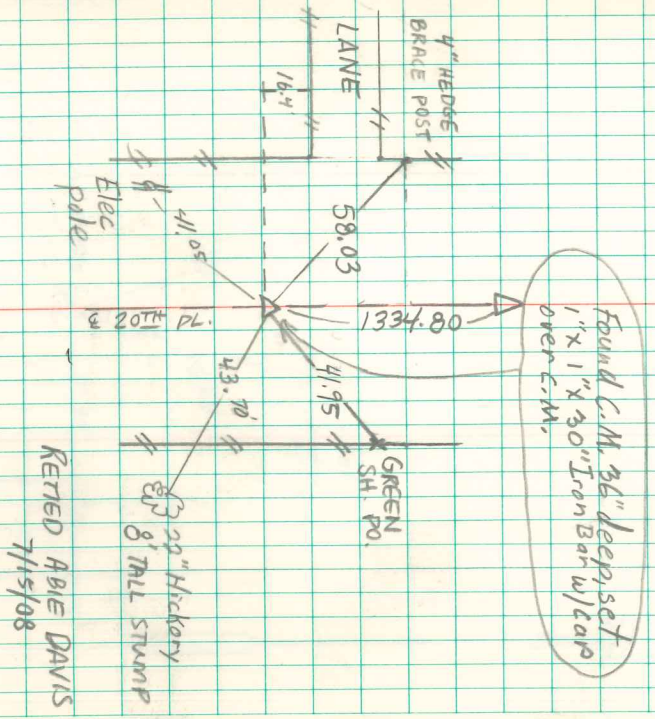 Found C.M. 36" deep, set
1" X 1" X 30" Iron Bar w/cap
over C.M.
4" HEDGE
BRACE POST
LANE
16.4'
58.03
1334.80
41.95
GREEN
SH. PO.
41.05
Elec
pole
20TH PL.
43.70'
22" Hickory
8' TALL STUMP
RETIED ABIE DAVIS
7/15/08